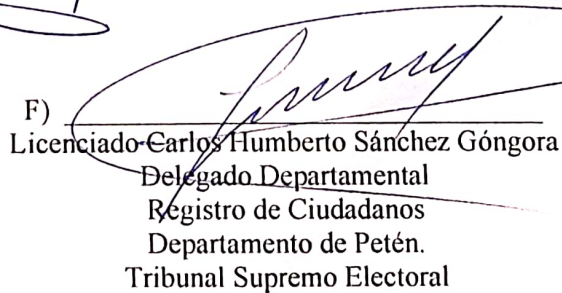 F)
Licenciado Carlos Humberto Sánchez Góngora
Delegado Departamental
Registro de Ciudadanos
Departamento de Petén.
Tribunal Supremo Electoral